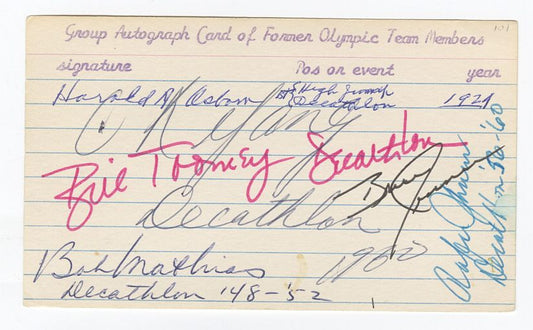 101
Group Autograph Card of Former Olympic Team Members
signature Pos or event year
Harold M Osborn 1st High Jump Decathlon 1924
C K Yang
Bill Toomey Decathlon
Bruce Jenner
Decathlon
1960
Bob Mathias
Decathlon '48 - '52
Rafer Johnson
Decathlon '56-'60